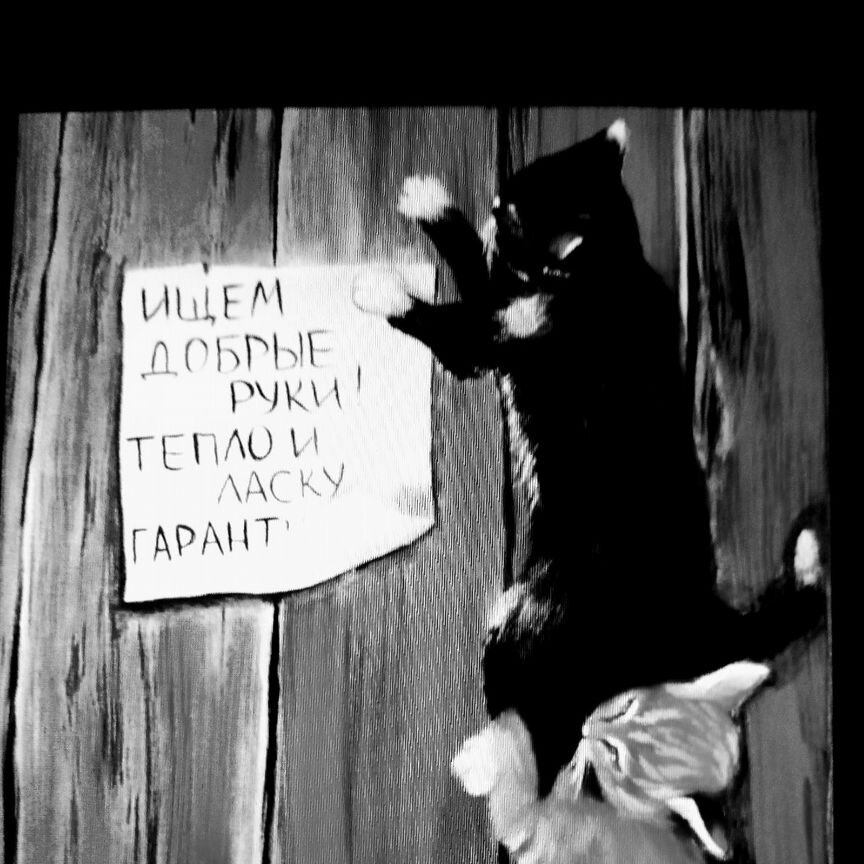 ИЩЕМ
ДОБРЫЕ
РУКИ!
ТЕПЛО И
ЛАСКУ
ГАРАНТ